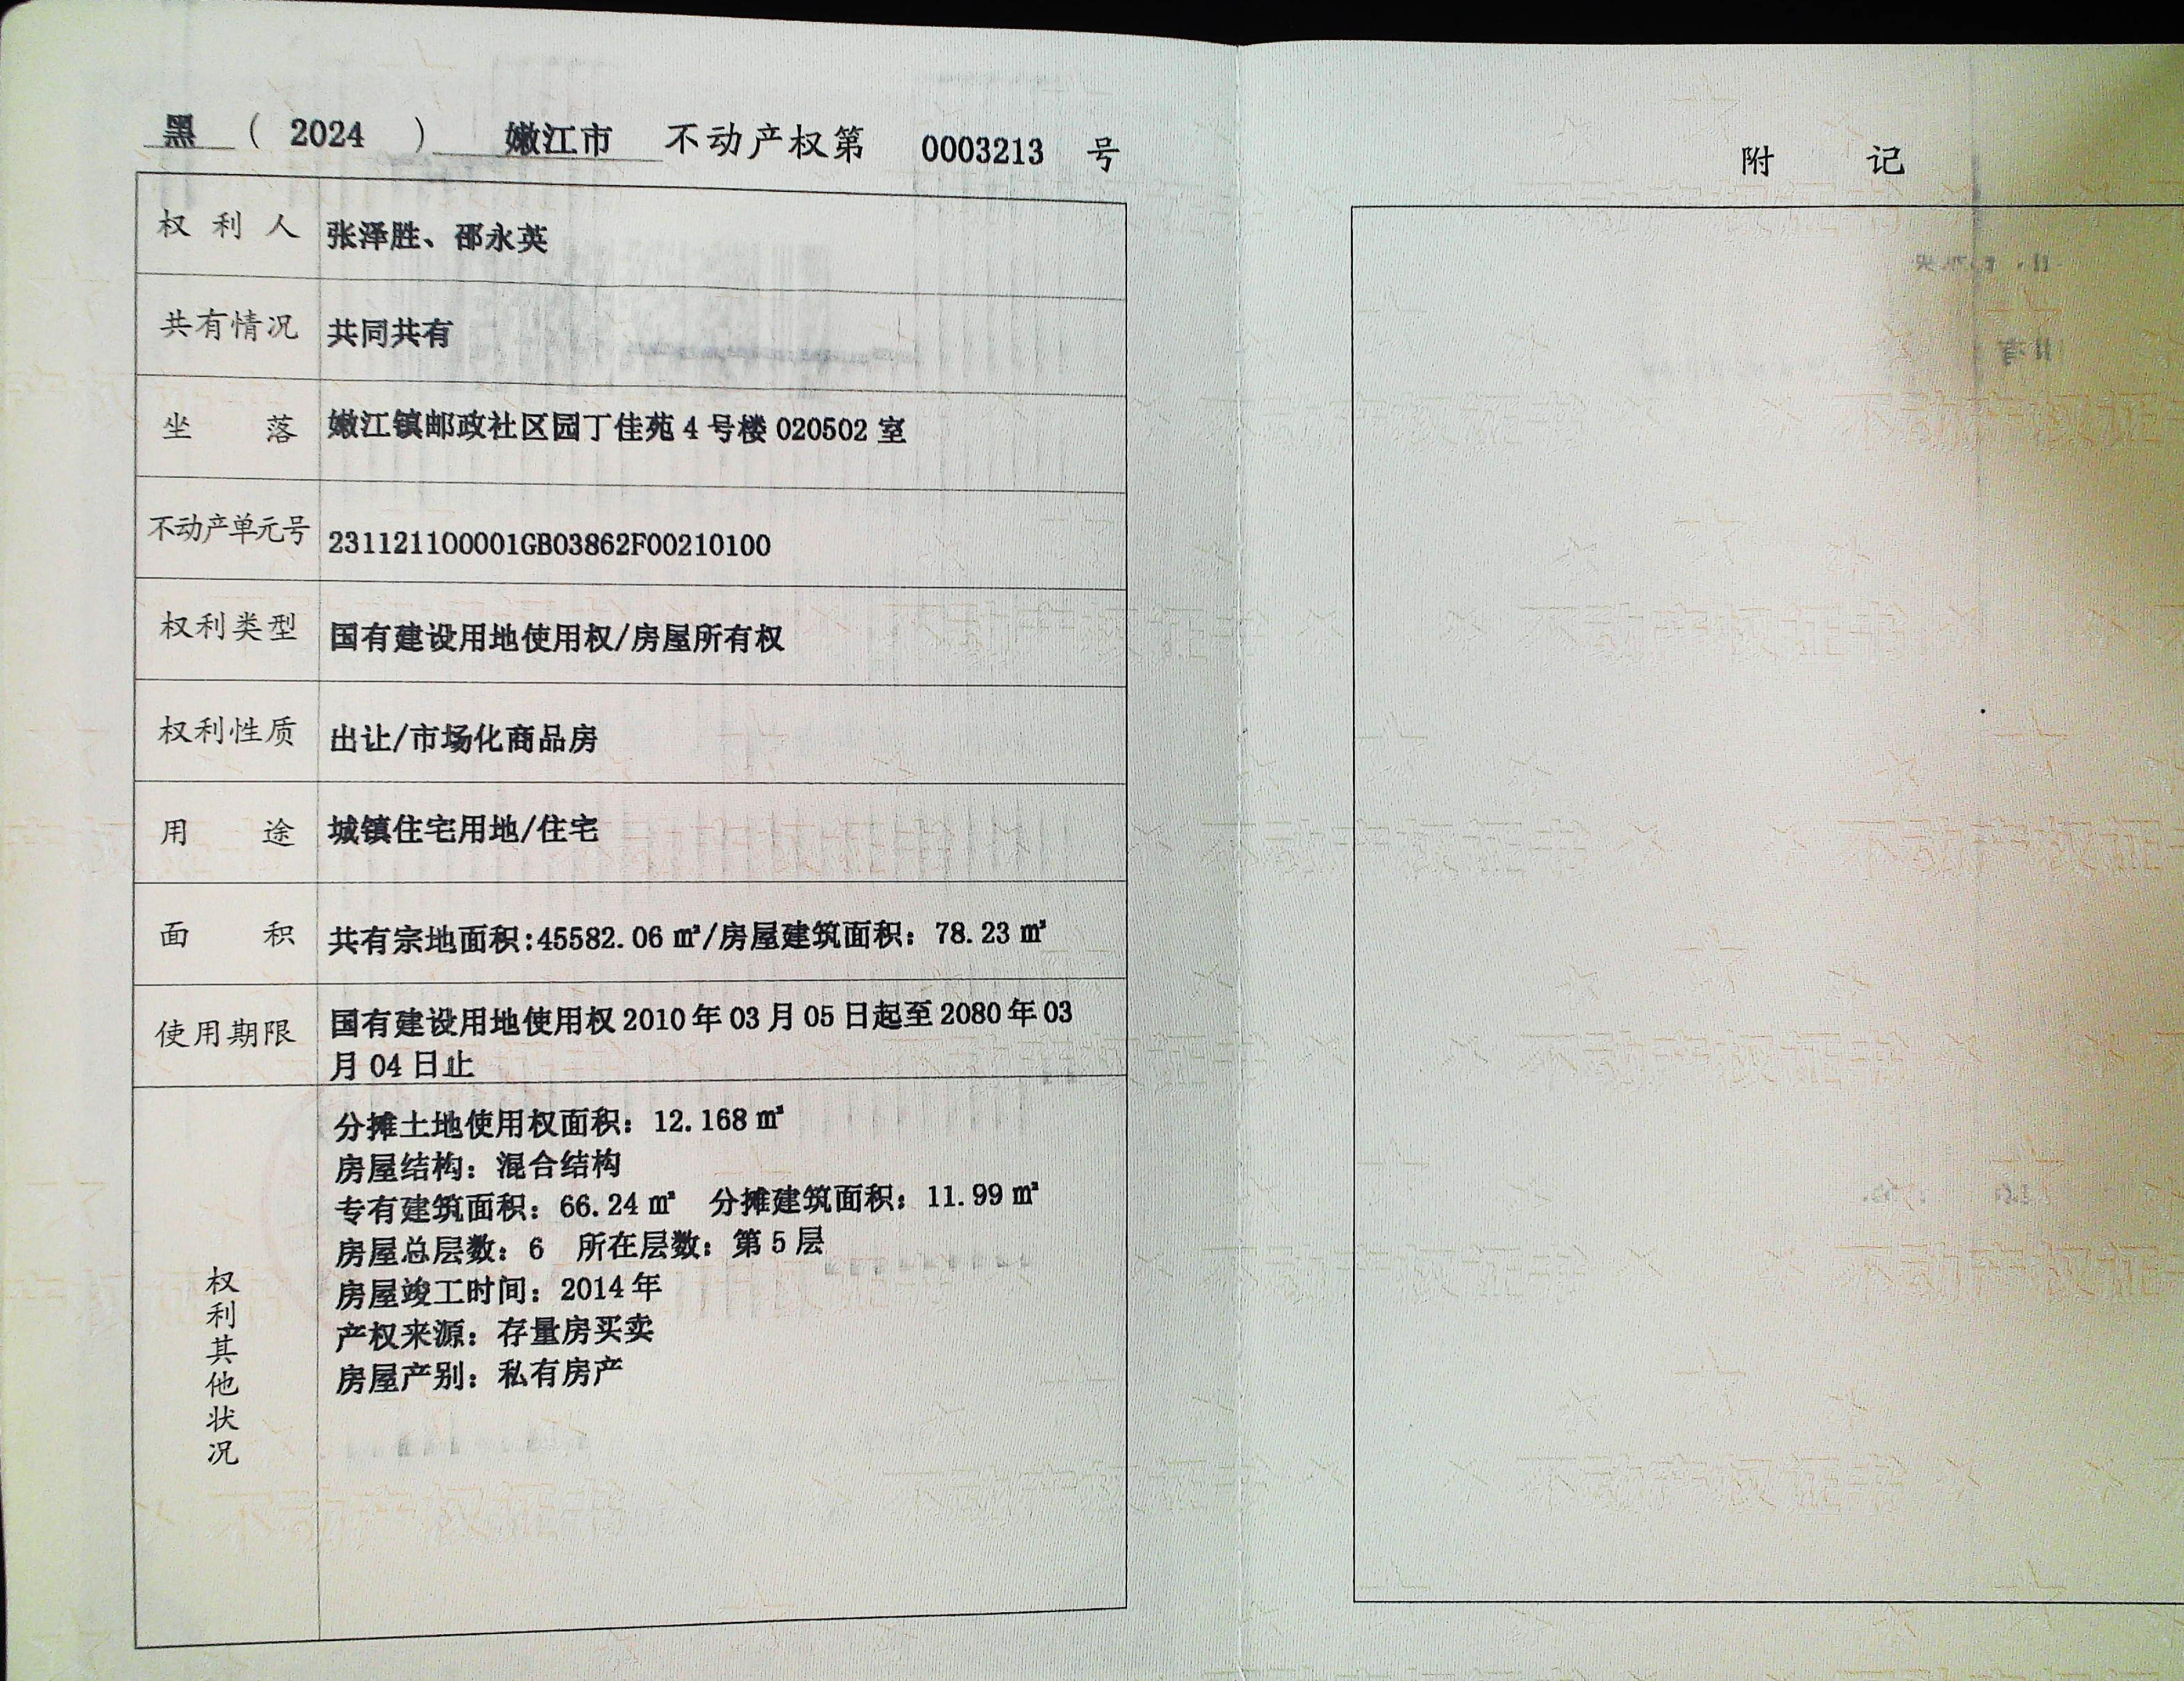 黑（2024）嫩江市 不动产权第 0003213 号
权利人 张泽胜、邵永英
共有情况 共同共有
坐落 嫩江镇邮政社区园丁佳苑4号楼020502室
不动产单元号 231121100001GB03862F00210100
权利类型 国有建设用地使用权/房屋所有权
权利性质 出让/市场化商品房
用途 城镇住宅用地/住宅
面积 共有宗地面积:45582.06㎡/房屋建筑面积：78.23㎡
使用期限 国有建设用地使用权2010年03月05日起至2080年03
月04日止
权利其他状况
分摊土地使用权面积：12.168㎡
房屋结构：混合结构
专有建筑面积：66.24㎡ 分摊建筑面积：11.99㎡
房屋总层数：6 所在层数：第5层
房屋竣工时间：2014年
产权来源：存量房买卖
房屋产别：私有房产
附记